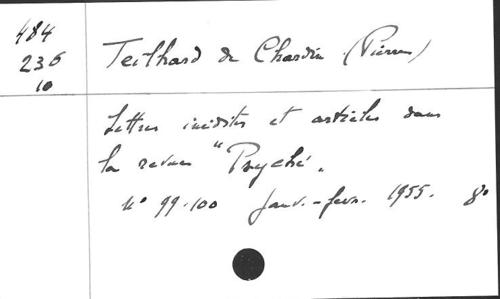 484
236
10
Teilhard de Chardin (Pierre)
Lettres inédites et articles dans
la revue "Psyché".
n° 99-100 janv.-fevr. 1955. 8°